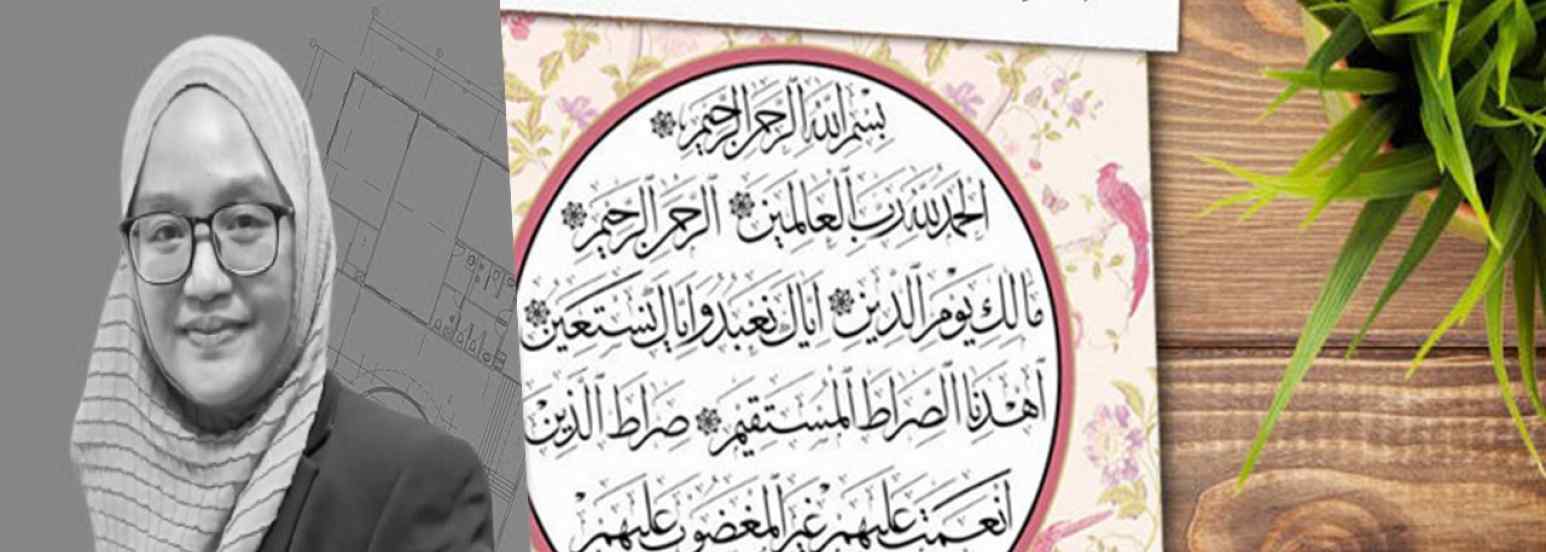 بِسْمِ اللَّهِ الرَّحْمَٰنِ الرَّحِيمِ
الْحَمْدُ لِلَّهِ رَبِّ الْعَالَمِينَ الرَّحْمَٰنِ الرَّحِيمِ
مَالِكِ يَوْمِ الدِّينِ إِيَّاكَ نَعْبُدُ وَإِيَّاكَ نَسْتَعِينُ
اهْدِنَا الصِّرَاطَ الْمُسْتَقِيمَ صِرَاطَ الَّذِينَ
أَنْعَمْتَ عَلَيْهِمْ غَيْرِ الْمَغْضُوبِ عَلَيْهِمْ